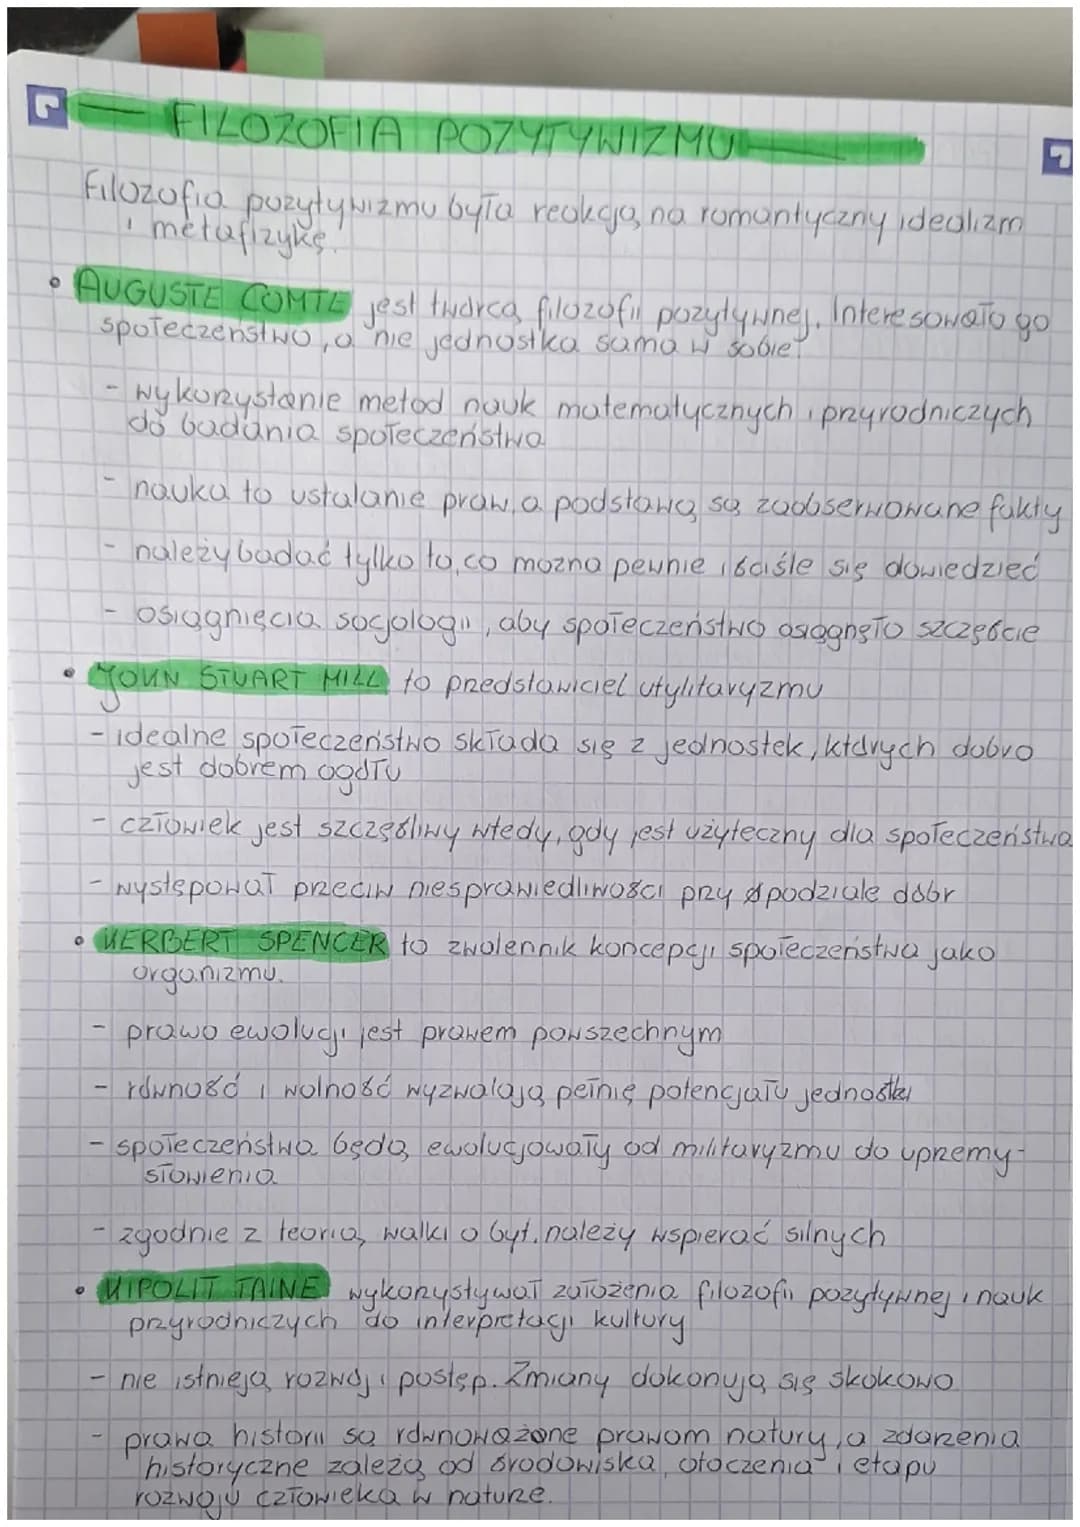 FILOZOFIA POZYTYWIZMU
Filozofia pozytywizmu była reakcją na romantyczny idealizm
i metafizykę.
• AUGUSTE COMTE jest twórcą filozofii pozytywnej. Interesowało go
społeczeństwo, a nie jednostka sama w sobie.
- wykorzystanie metod nauk matematycznych i przyrodniczych
do badania społeczeństwa
- nauka to ustalanie praw, a podstawą są zaobserwowane fakty
- należy badać tylko to, co można pewnie i ściśle się dowiedzieć
- osiągnięcia socjologii, aby społeczeństwo osiągnęło szczęście
• JOHN STUART MILL to przedstawiciel utylitaryzmu
- idealne społeczeństwo składa się z jednostek, których dobro
jest dobrem ogółu
- człowiek jest szczęśliwy wtedy, gdy jest użyteczny dla społeczeństwa
- występował przeciw niesprawiedliwości przy podziale dóbr
• HERBERT SPENCER to zwolennik koncepcji społeczeństwa jako
organizmu.
- prawo ewolucji jest prawem powszechnym
- równość i wolność wyzwalają pełnię potencjału jednostki
- społeczeństwa będą ewolucjowały od militaryzmu do uprzemy-
słowienia
- zgodnie z teorią walki o byt, należy wspierać silnych
• HIPOLIT TAINE wykorzystywał założenia filozofii pozytywnej i nauk
przyrodniczych do interpretacji kultury
- nie istnieją rozwój i postęp. Zmiany dokonują się skokowo
- prawa historii są równoważone prawom natury, a zdarzenia
historyczne zależą od środowiska, otoczenia i etapu
rozwoju człowieka w naturze.